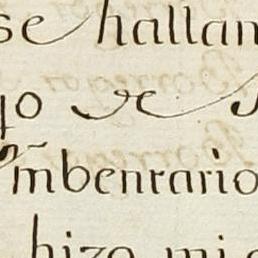 se hallan
go de
Ymbentario
hizo mi